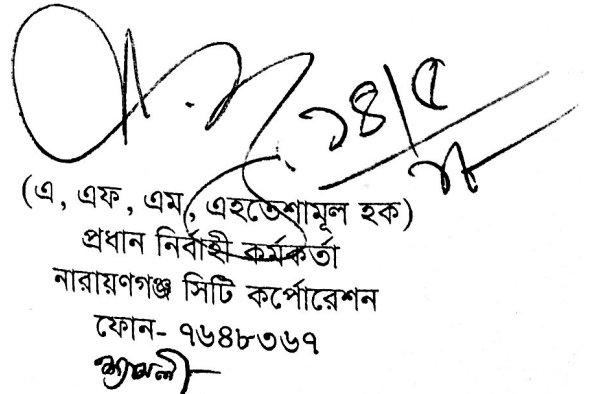 ১৪/৫
(এ, এফ, এম, এহতেশামুল হক)
প্রধান নির্বাহী কর্মকর্তা
নারায়ণগঞ্জ সিটি কর্পোরেশন
ফোন- ৭৬৪৮৩৬৭
শ্যামলী